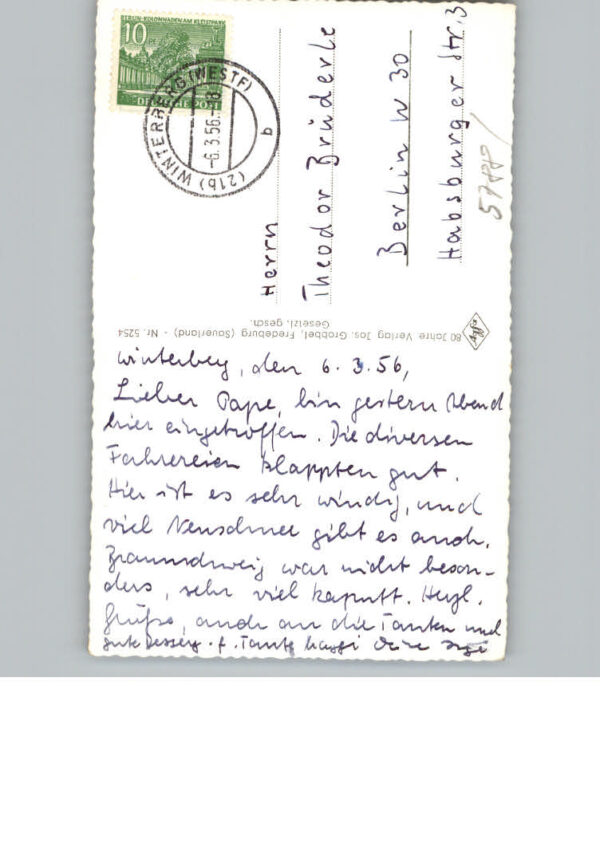 BERLIN-KOLONNADEN AM KLEISTPARK
10
DEUTSCHE POST
(21b) WINTERBERG (WESTF)
-6.3.56.-
b
Herrn
Theodor Brüderle
Berlin W 30
Habsburger Str. 3
5788/
80 Jahre Verlag Jos. Grobbel, Fredeburg (Sauerland) - Nr. 5254
Gesetzl. gesch.
Winterberg, den 6. 3. 56,
Lieber Pape, bin gestern Abend
hier eingetroffen. Die diversen
Fahrereien klappten gut.
Hier ist es sehr windig, und
viel Neuschnee gibt es auch.
Braunschweig war nicht beson-
ders, sehr viel kaputt. Herzl.
Grüße, auch an die Tanten und
gute Besserg. f. Tante Deine